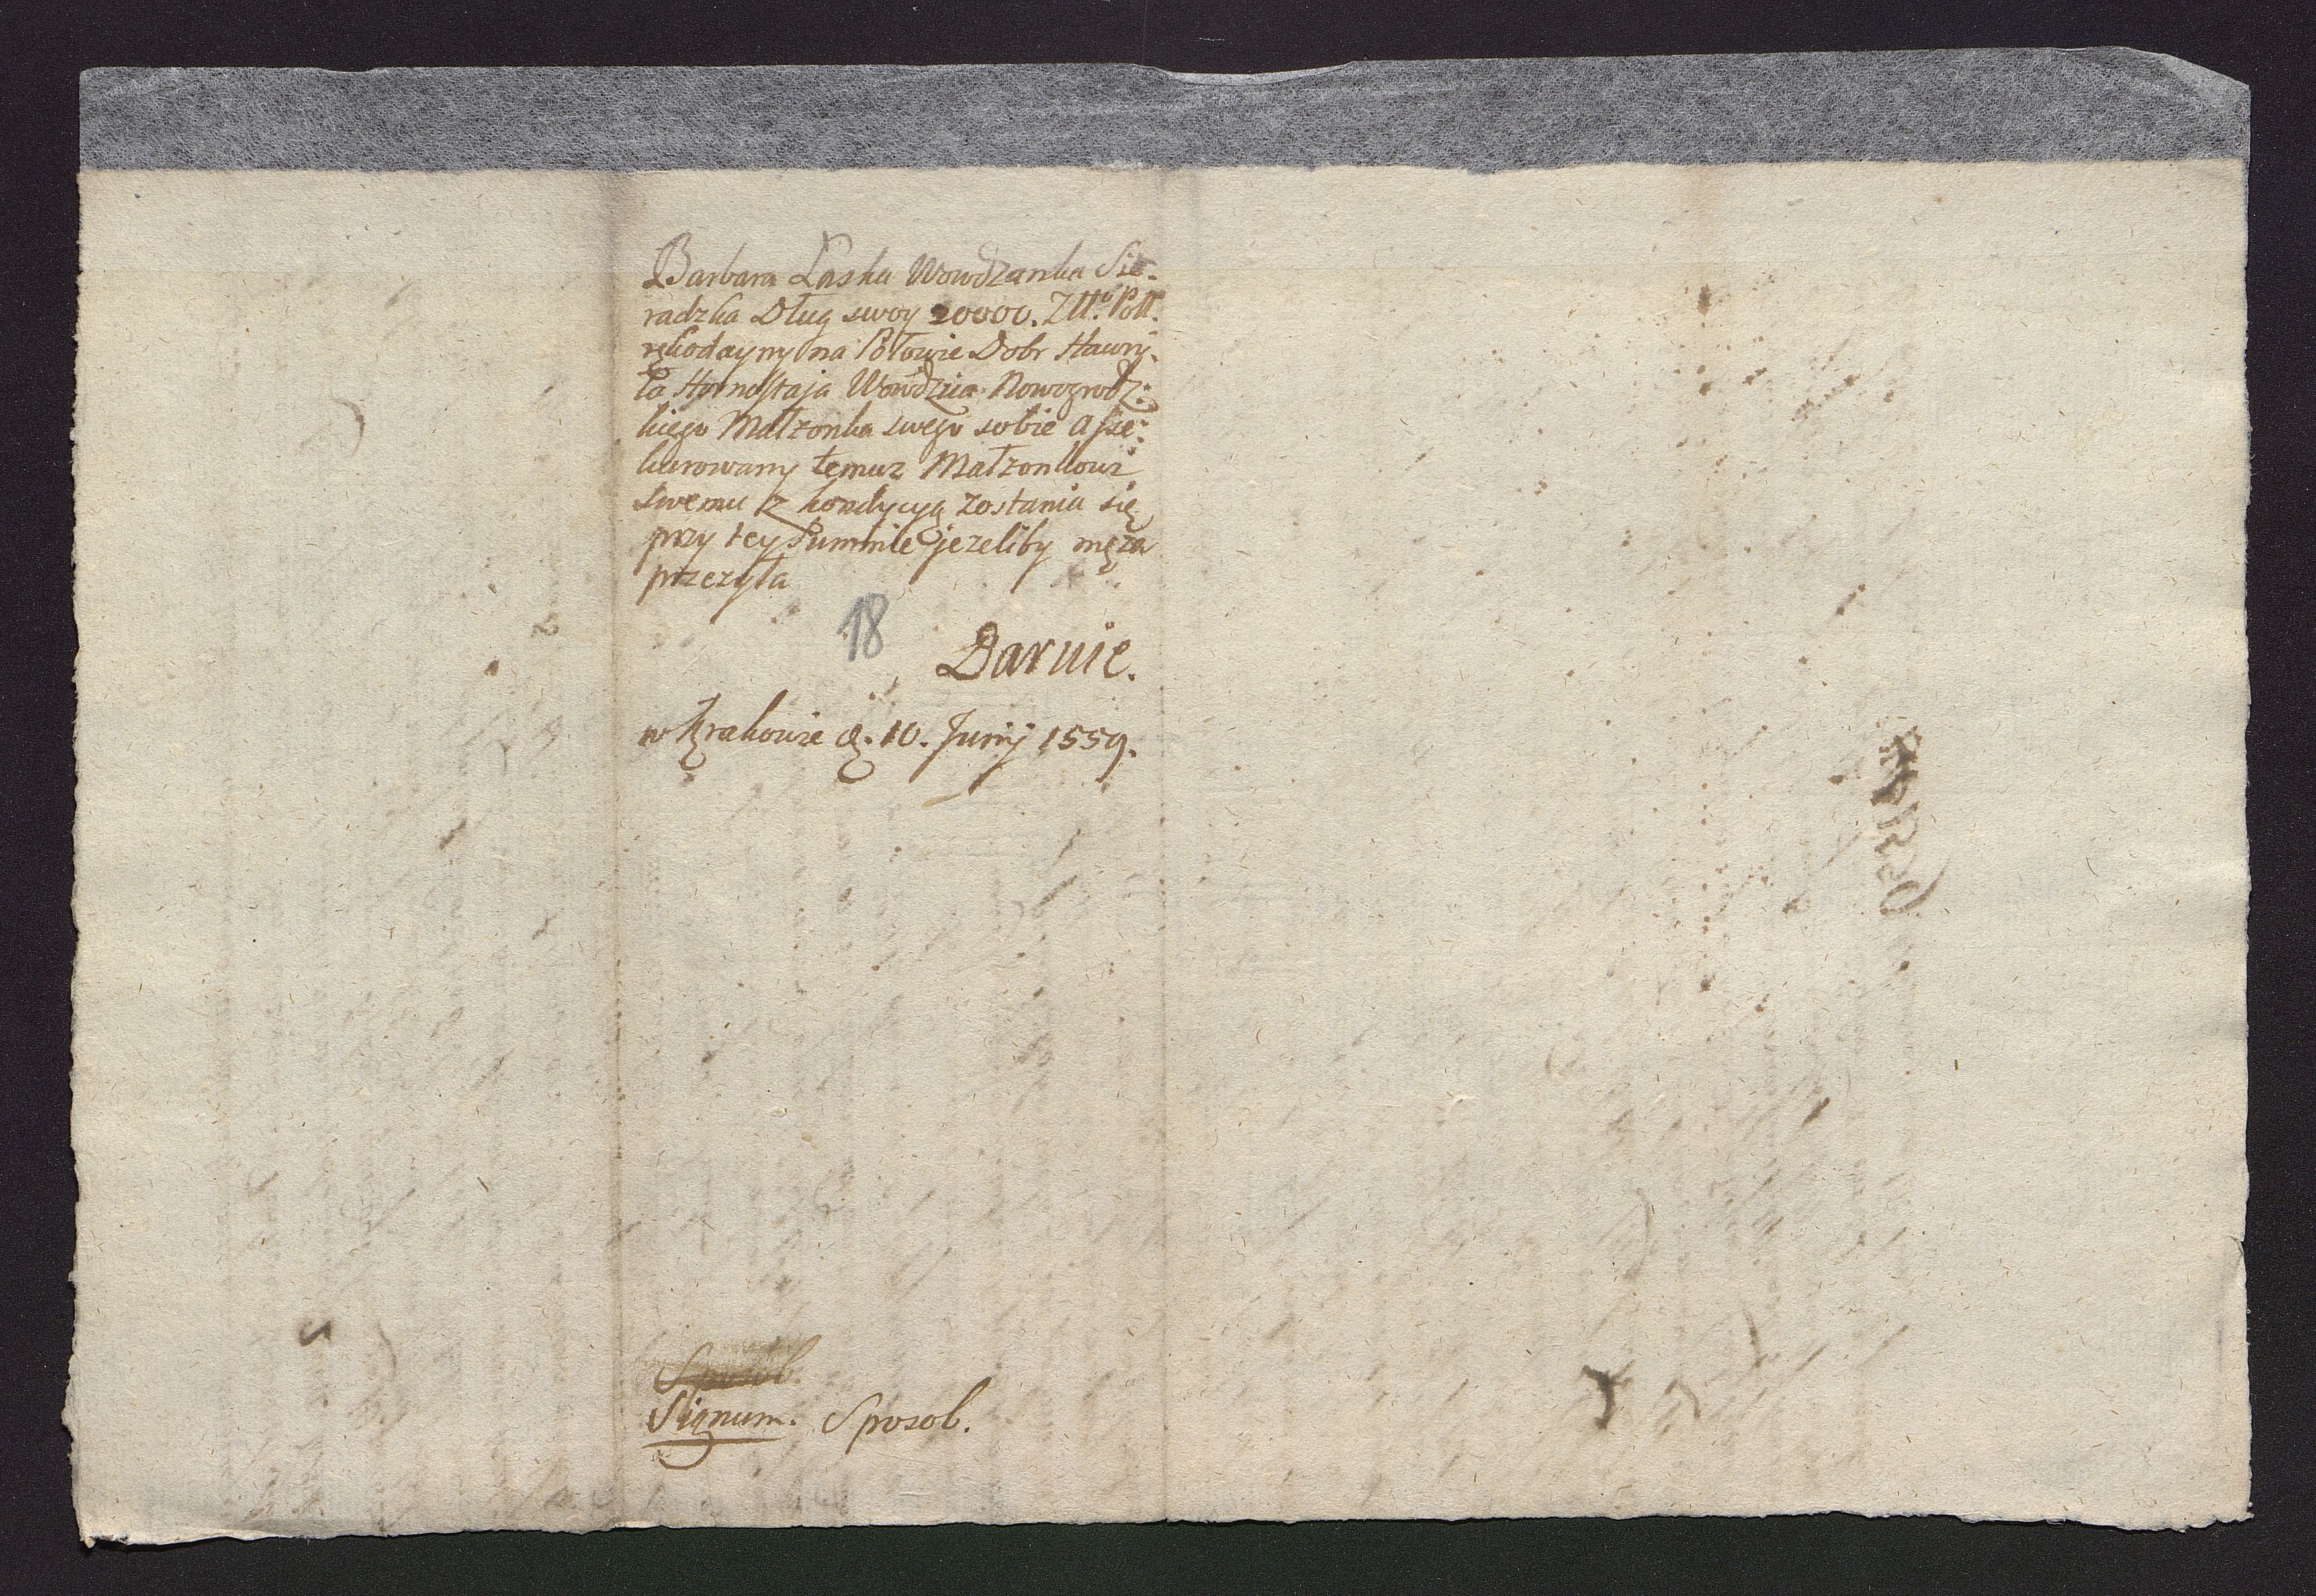 Barbara Łaska Wowdzanka Sie-
radzka Dług swoy 20000. Złł: Poll.
na Połowie Dobr Hawry-
ła Hornostaja Wowdzica Nowogrodz:
kiego Małzonka swego sobie Asse:
kurowany temuz Małzonkowi
swemu z kondycyą zostania się
przy tey Summie jezeliby męża
przezyła
18
Daruie.
w Krakowie d. 10. Junij 1559.
Sposob.
Signum. Sposob.